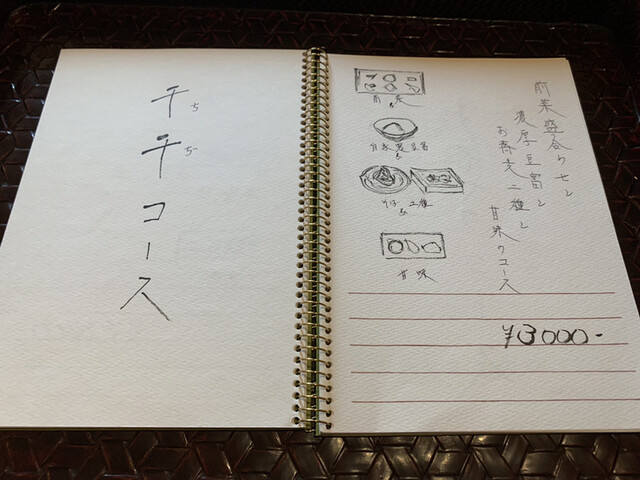 千千コース
ちぢ
前菜盛合わせと
濃厚豆冨と
お蕎麦二種と
甘味のコース
前菜
自家製豆冨
そば二種
甘味
¥3000-